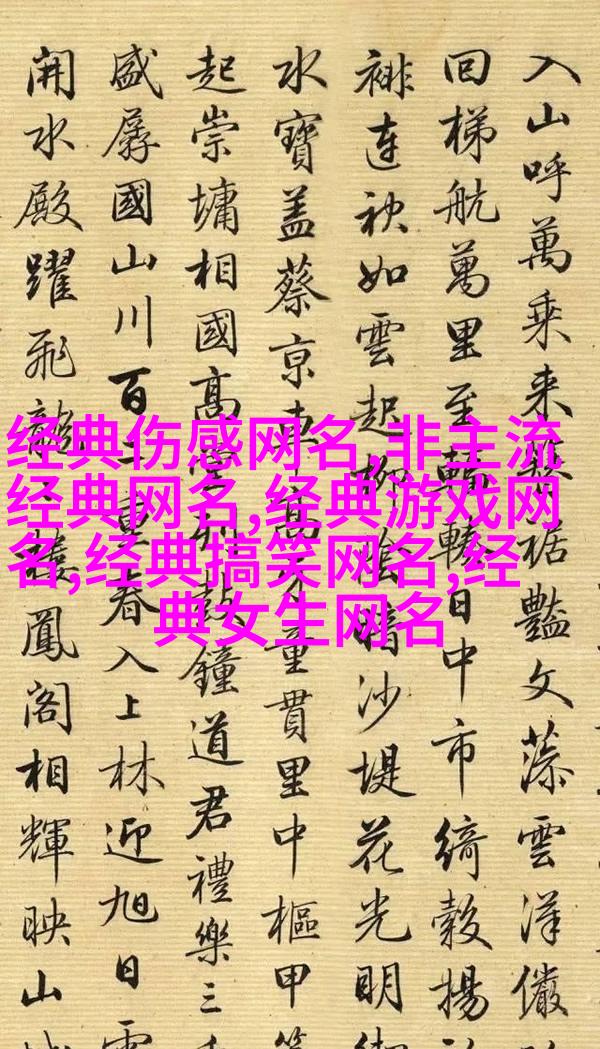 经典伤感网名,非主流
经典网名,经典游戏网
名,经典搞笑网名,经
典女生网名
入山呼萬乘来裾豔文藻雲洋儼
回梯航萬里至日中市綺縠揚
緋連袂如雲起柳陰沙堤花光明
水寶蓋蔡京車高牙童貫里中樞甲第
起崇墉相國高鼓鐘道君禮樂三
盛孱國山川百二重春入上林迎旭日雲
開水殿躍飛龍樓鳳閣相輝映山